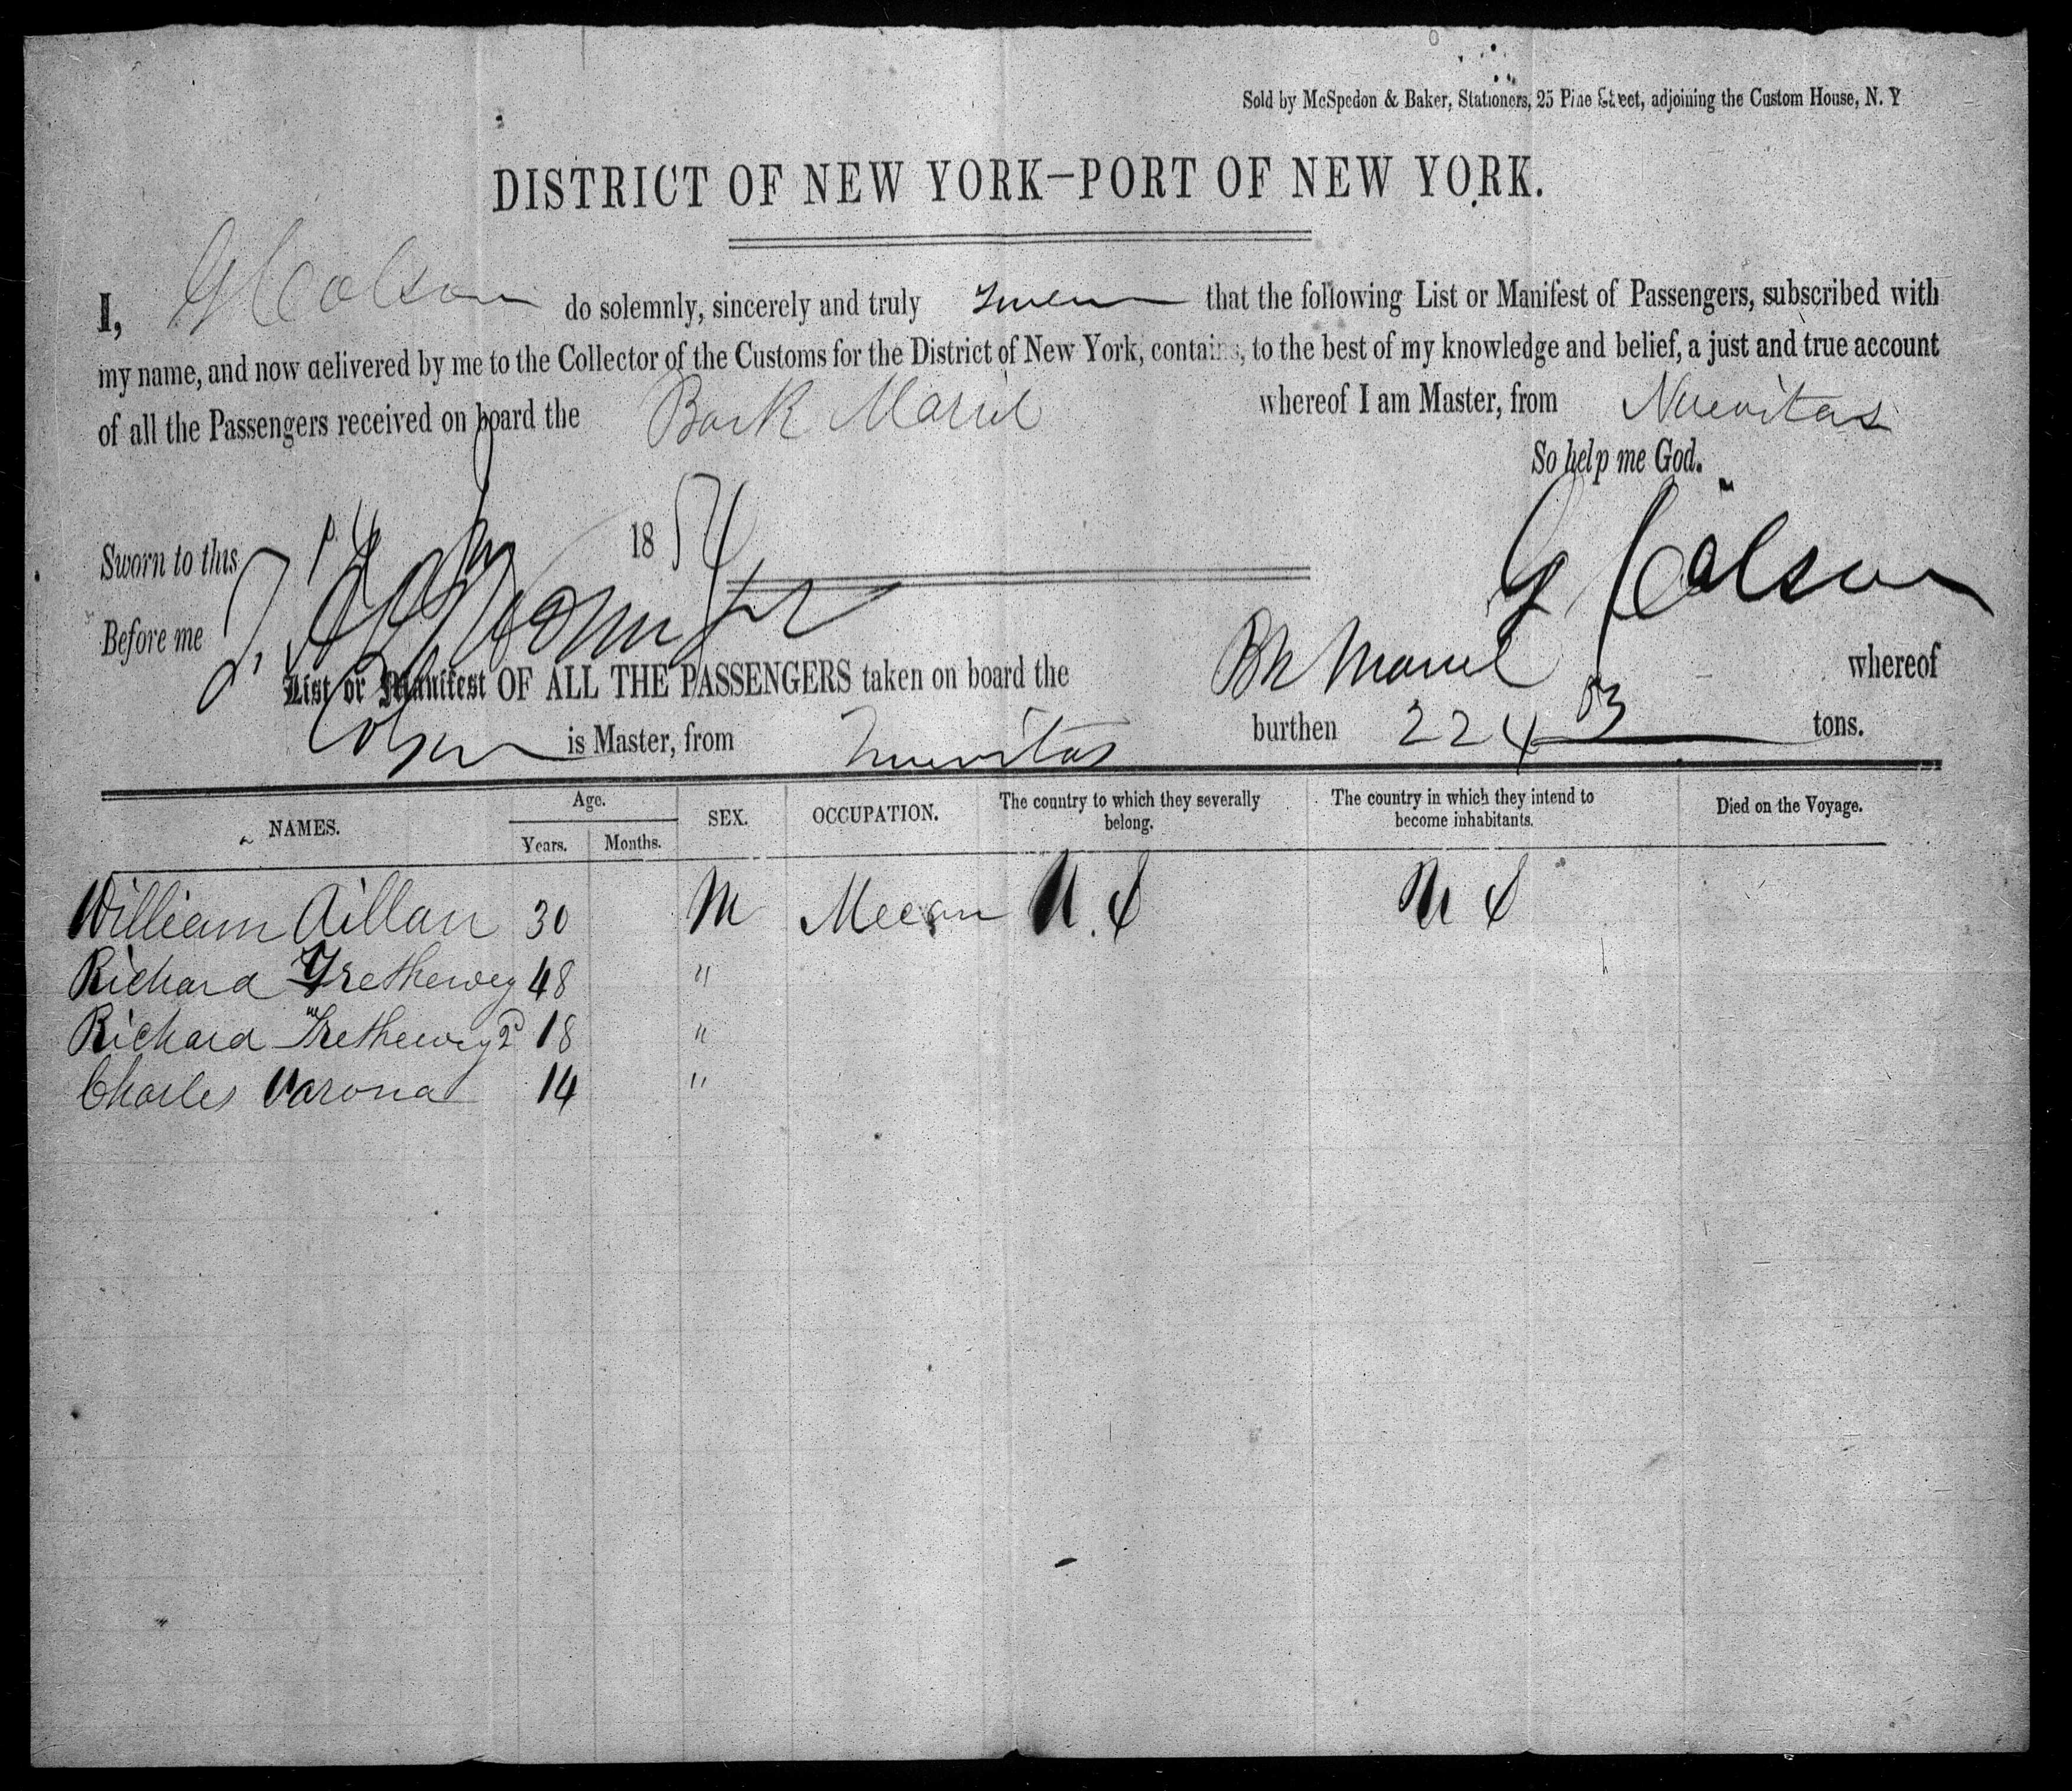 Sold by McSpedon & Baker, Stationers, 25 Pine Street, adjoining the Custom House, N. Y
DISTRICT OF NEW YORK—PORT OF NEW YORK.
I, G Colson do solemnly, sincerely and truly swear that the following List or Manifest of Passengers, subscribed with
my name, and now delivered by me to the Collector of the Customs for the District of New York, contains, to the best of my knowledge and belief, a just and true account
of all the Passengers received on board the Bark Mariel whereof I am Master, from Nuevitas
So help me God.
Sworn to this 1854
G. Colson
Before me
List or Manifest OF ALL THE PASSENGERS taken on board the Bk Mariel whereof
Colson is Master, from Nuevitas burthen 224 83 tons.
NAMES. Age. Years. Months. SEX. OCCUPATION. The country to which they severally belong. The country in which they intend to become inhabitants. Died on the Voyage.
William Aillan 30 M U. S U S
Richard Trethewey 48 "
Richard Trethewey 2d 18 "
Charles Varona 14 "